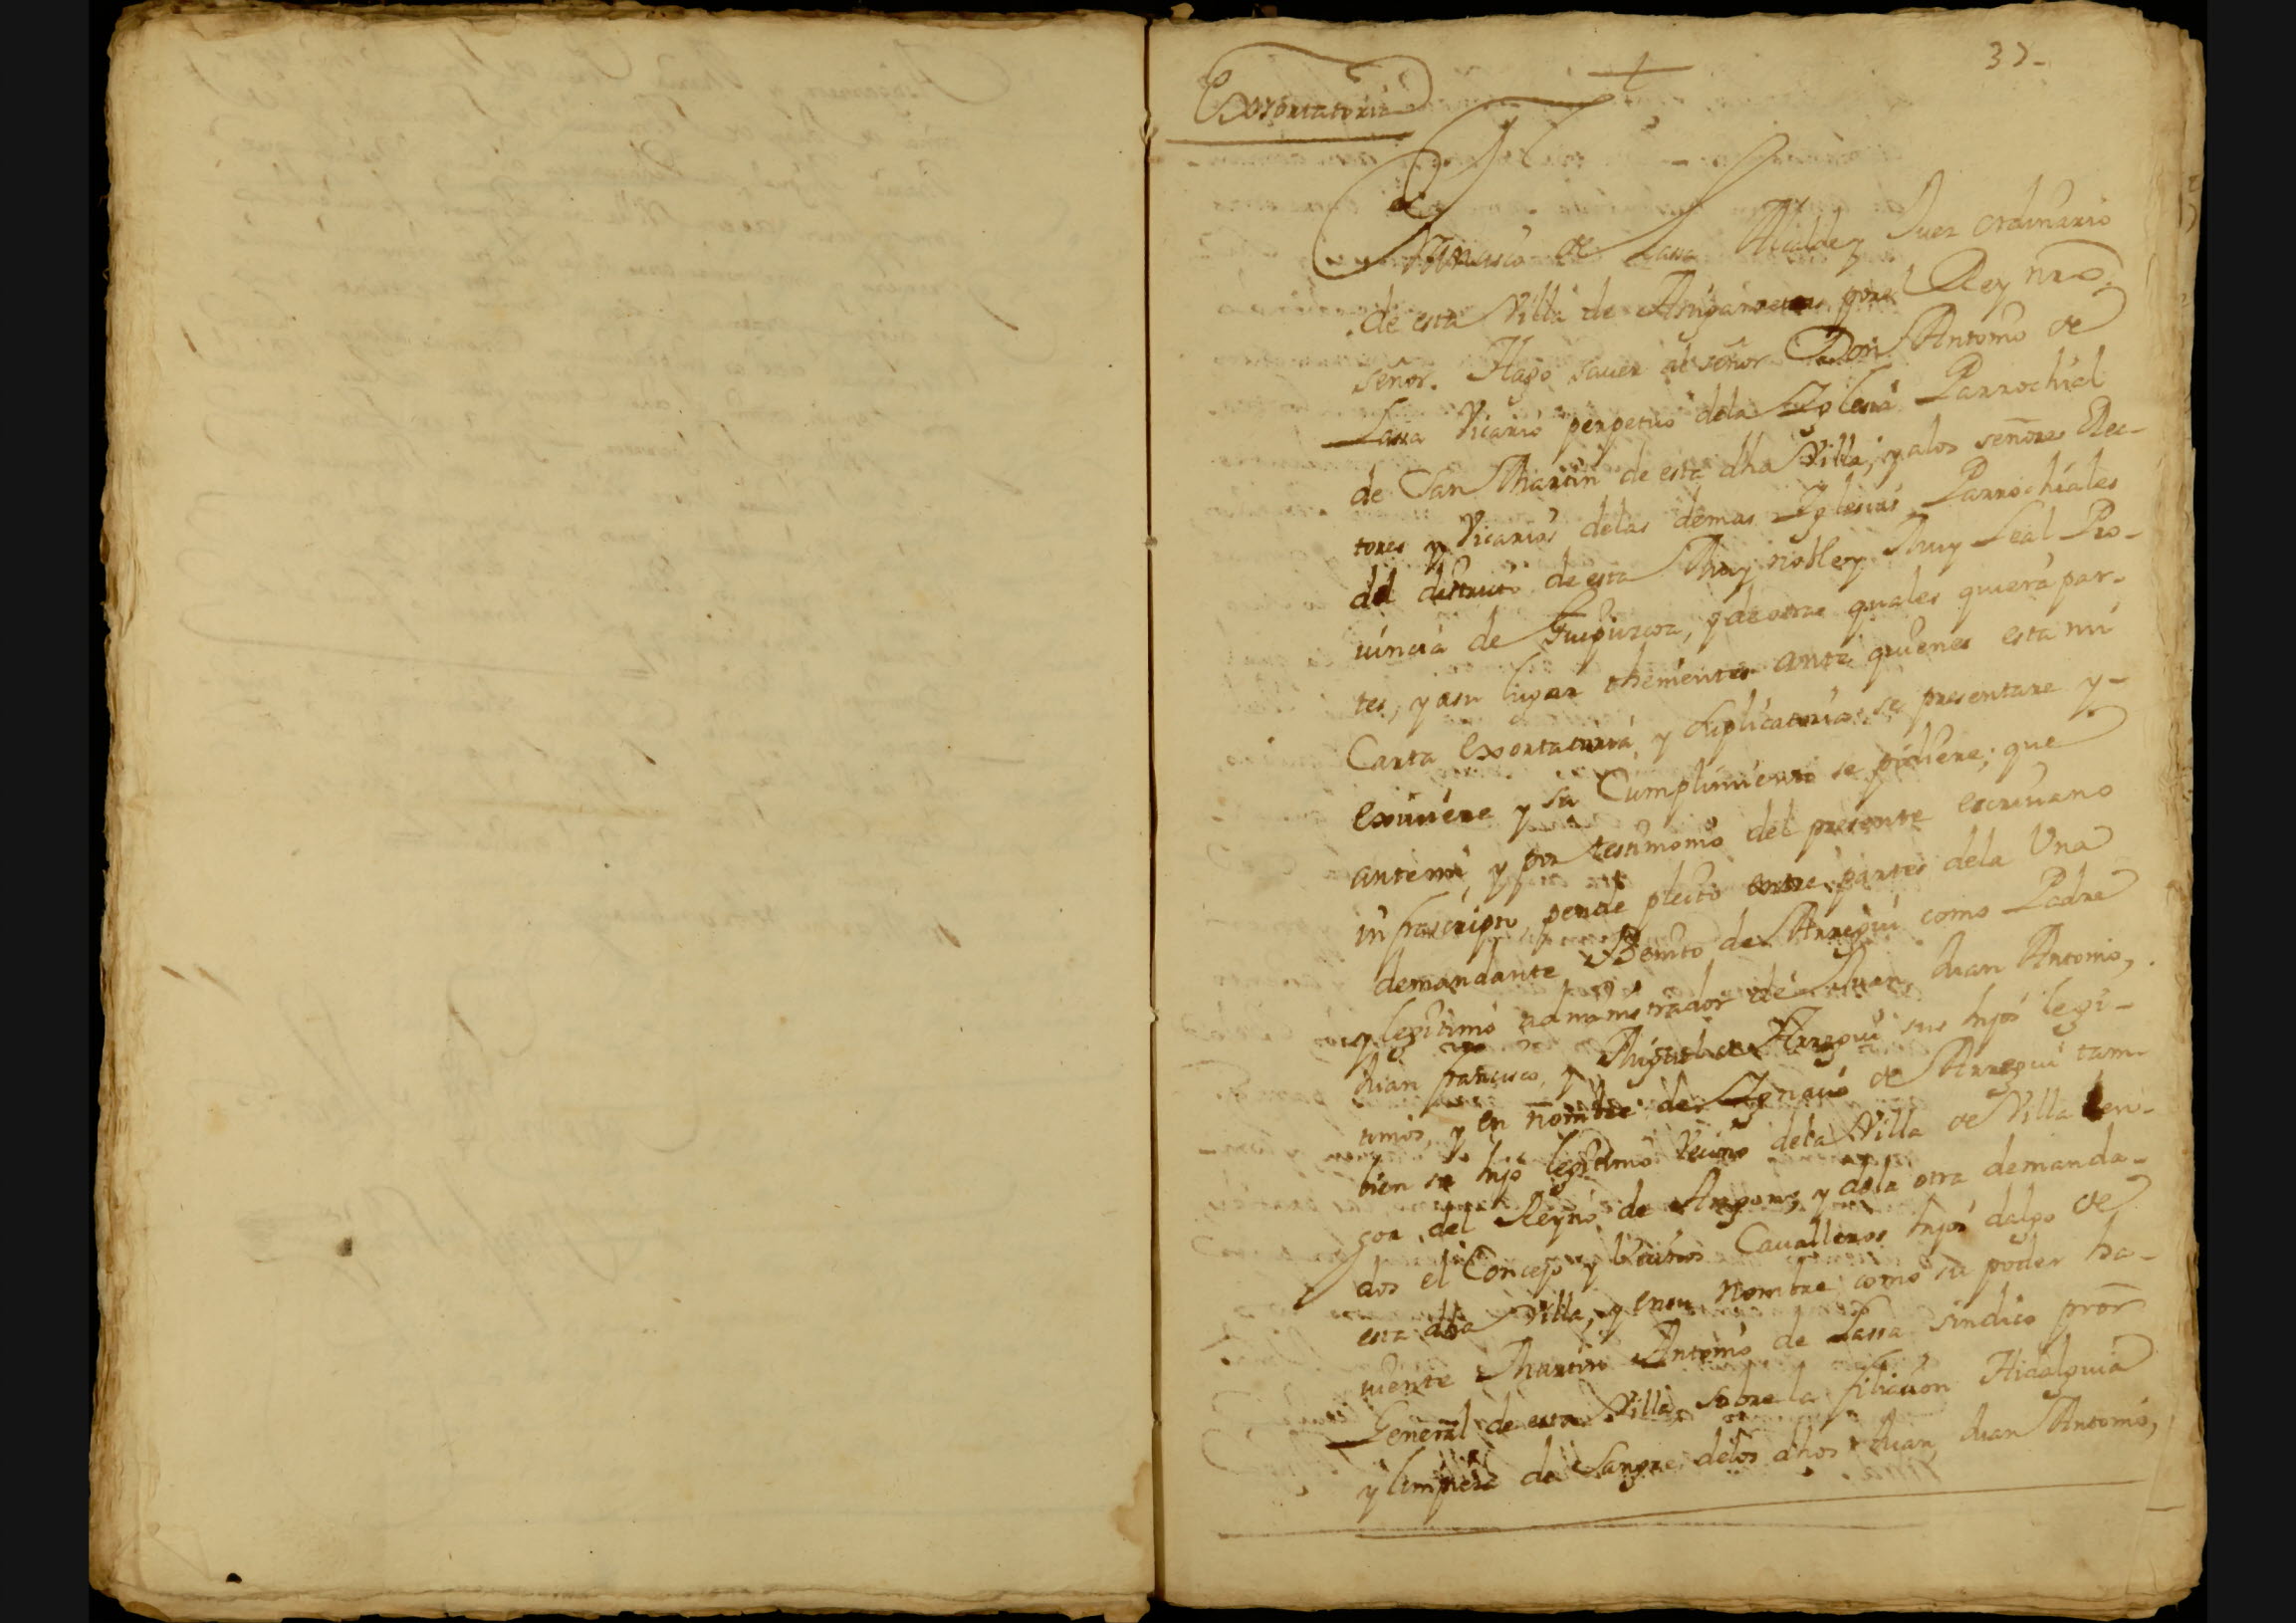 37-
Exortatoria
Francisco de Lassa Alcalde y Juez ordinario
de esta Villa de Amezqueta por el Rey nro
señor. Hago sauer al señor Don Antonio de
Lassa Vicario perpetuo dela Iglesia Parrochial
de San Martin de esta dha Villa, y alos señores Rec-
tores y Vicarios delas demas Iglesias Parrochiales
del distrito de esta Muy noble y Muy Leal Pro-
uincia de Guipuzcoa, y de otras quales quiera par-
tes, y asu lugar thenientes ante quienes esta mi
Carta Exortatoria, y suplicatoria se presentare y-
Exiuiere y su Cumplimiento se pidiere; que
ante mi, y por testimonio del presente escriuano
infrascripto, pende pleito entre partes dela Una
demandante Benito de Arregui como Padre
y legitimo administrador de Juan, Juan Antonio,
Juan francisco, y Miguel de Arregui sus hijos legi-
timos, y en nombre de Ignacio de Arregui tam-
bien su hijo legitimo Vecino dela Villa de Villa
del Reyno de Aragon, y dela otra demanda-
dos el Concejo y Vecinos Caualleros hijos dalgo de
esta dha Villa, y en su nombre como su poder ha-
uiente Martin Antonio de Lassa sindico pror
General de esta Villa, sobre la filiacion Hidalguia
y limpieza de Sangre delos dhos Juan, Juan Antonio,